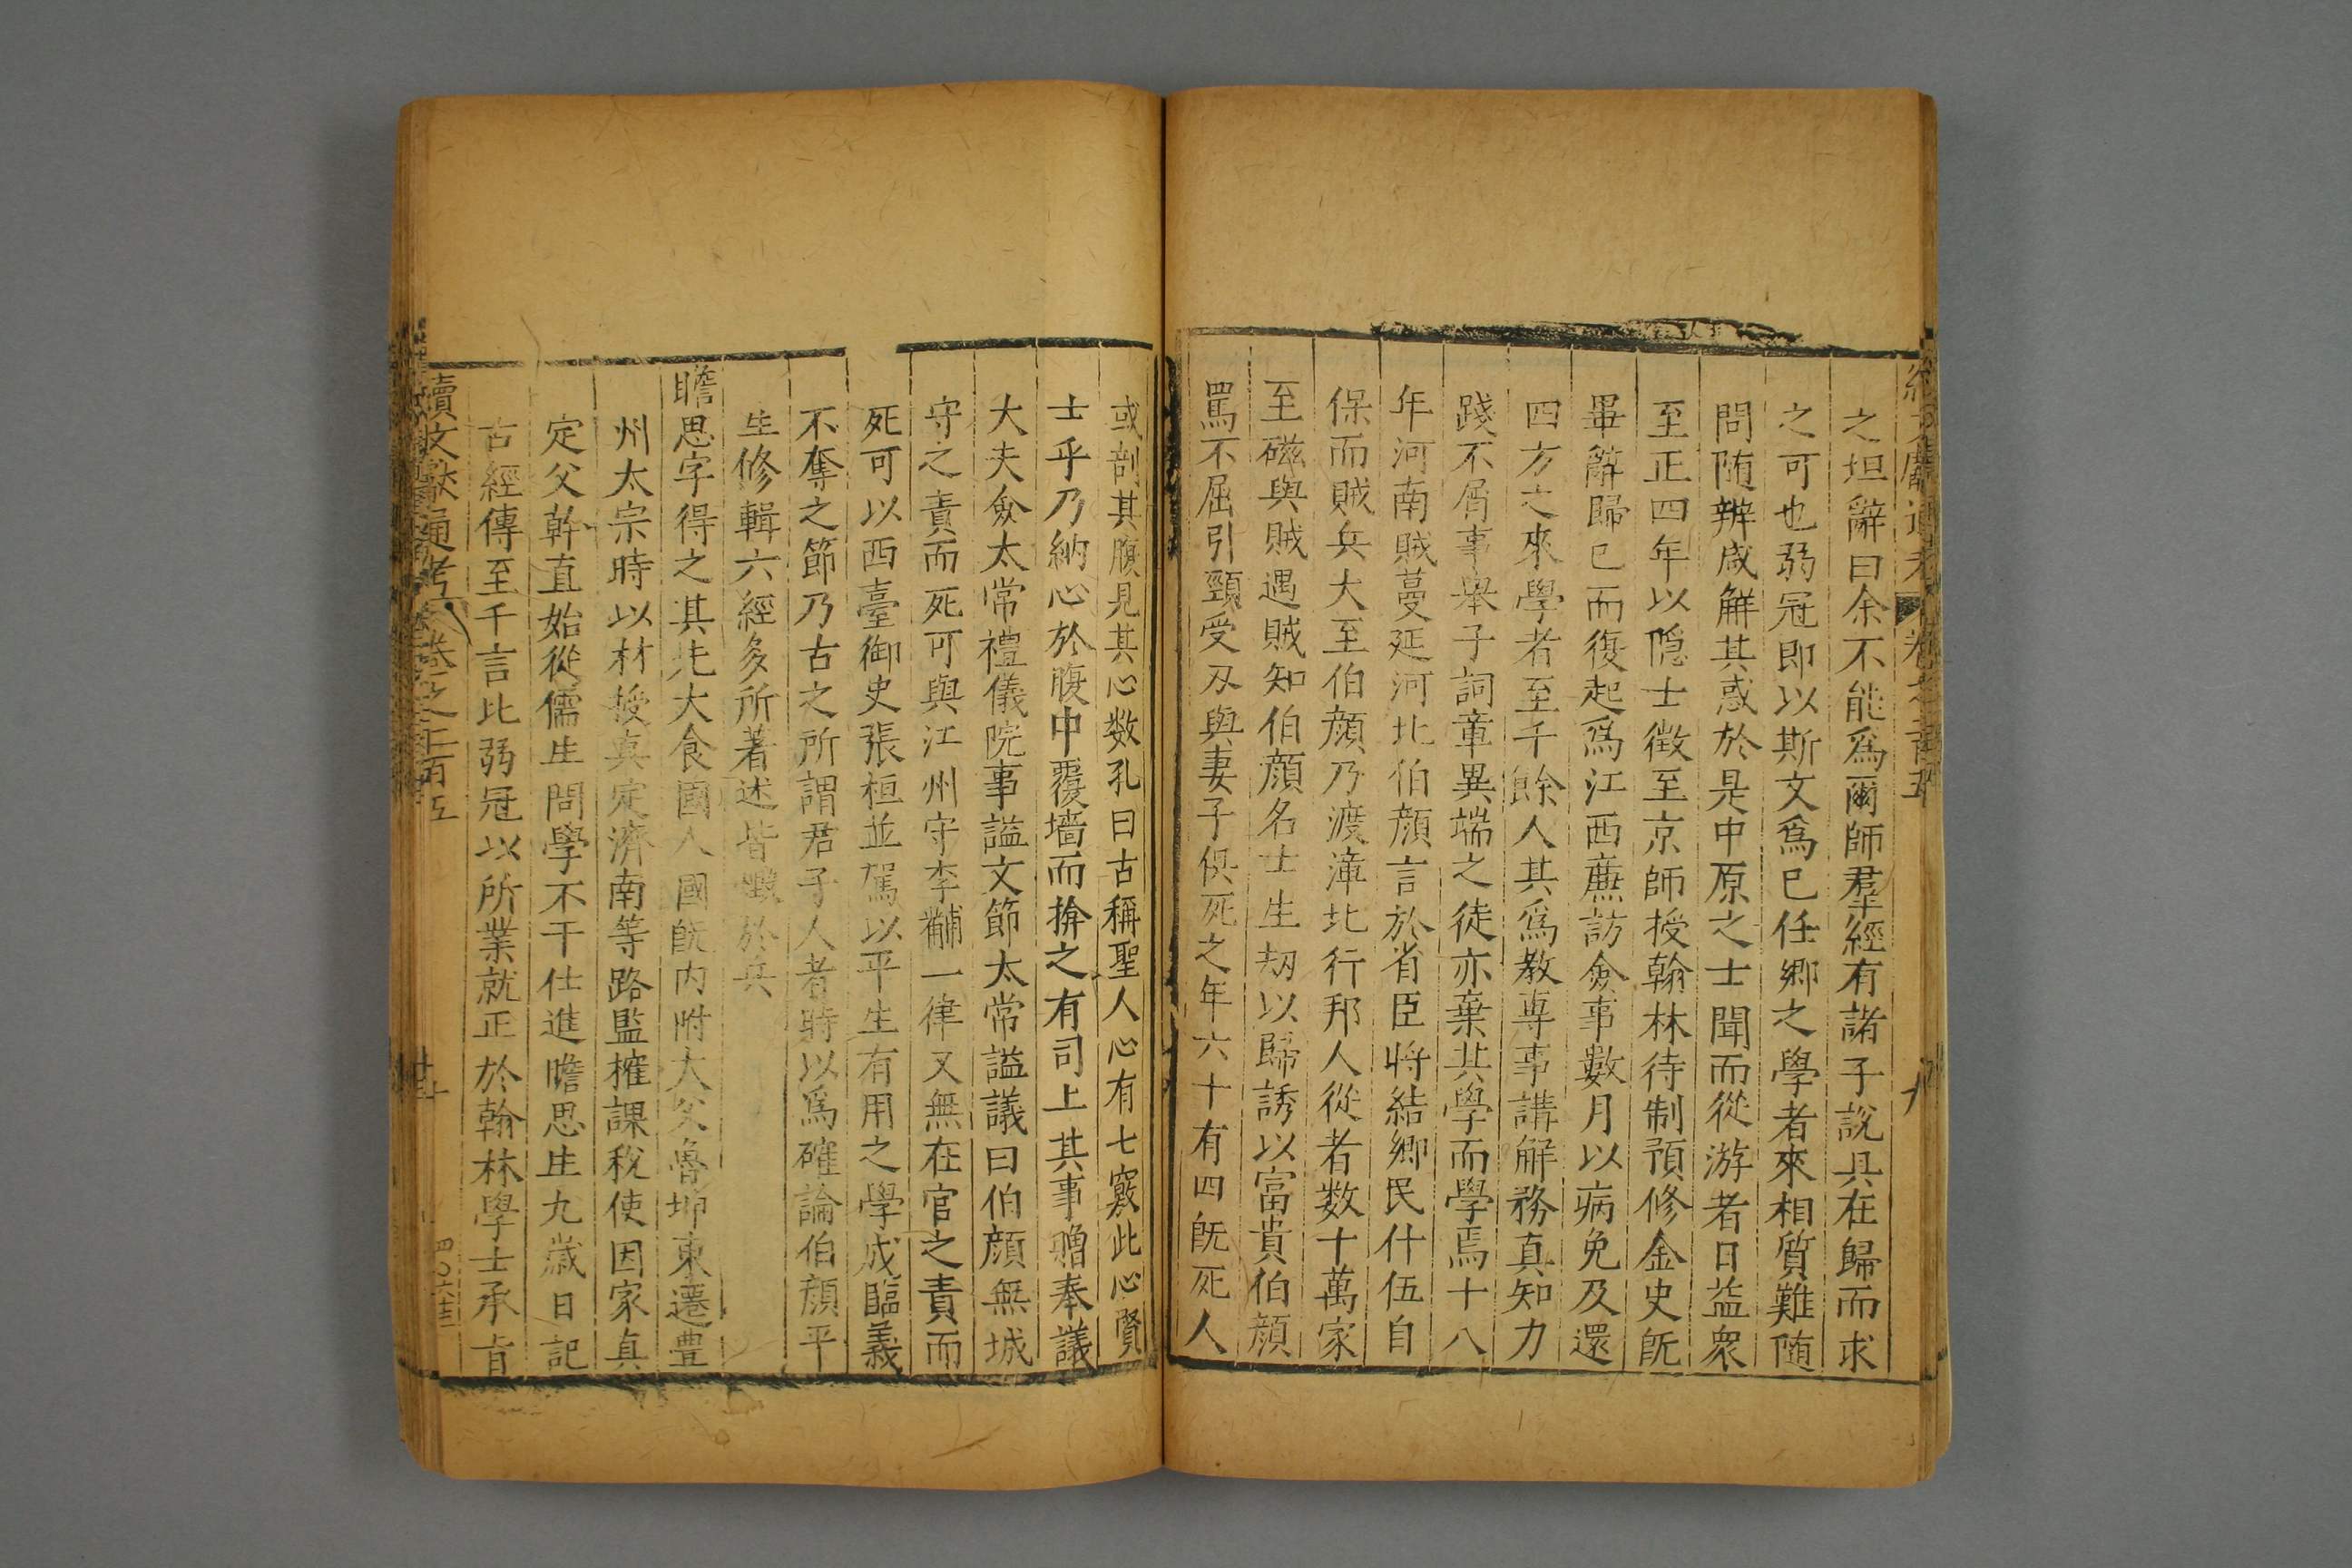 之坦辭曰余不能爲爾師羣經有諸子說具在歸而求
之可也弱冠即以斯文爲已任鄉之學者來相質難随
問随辨咸解其惑於是中原之士聞而從游者日益衆
至正四年以隱士徵至京師授翰林待制預修金史旣
畢辭歸已而復起爲江西廉訪僉事數月以病免及還
四方之來學者至千餘人其爲教專事講解務真知力
踐不屑事舉子詞章異端之徒亦棄其學而學焉十八
年河南賊蔓延河北伯顔言於省臣將結鄉民什伍自
保而賊兵大至伯顔乃渡漳北行邦人從者数十萬家
至磁與賊遇賊知伯顔名士生刼以歸誘以富貴伯顔
罵不屈引頸受刃與妻子俱死之年六十有四旣死人
或剖其腹見其心数孔曰古稱聖人心有七竅此心賢
士乎乃納心於腹中覆墙而揜之有司上其事贈奉議
大夫僉太常禮儀院事謚文節太常謚議曰伯顔無城
守之責而死可與江州守李黼一律又無在官之責而
死可以西臺御史張桓並駕以平生有用之學成臨義
不奪之節乃古之所謂君子人者時以爲確論伯顔平
生修輯六經多所著述皆燬於兵
瞻思字得之其先大食國人國旣内附大父魯坤東遷豊
州太宗時以材授真定濟南等路監榷課税使因家真
定父幹直始從儒生問學不干仕進瞻思生九歲日記
古經傳至千言比弱冠以所業就正於翰林學士承旨
續文献通考 卷之二百五